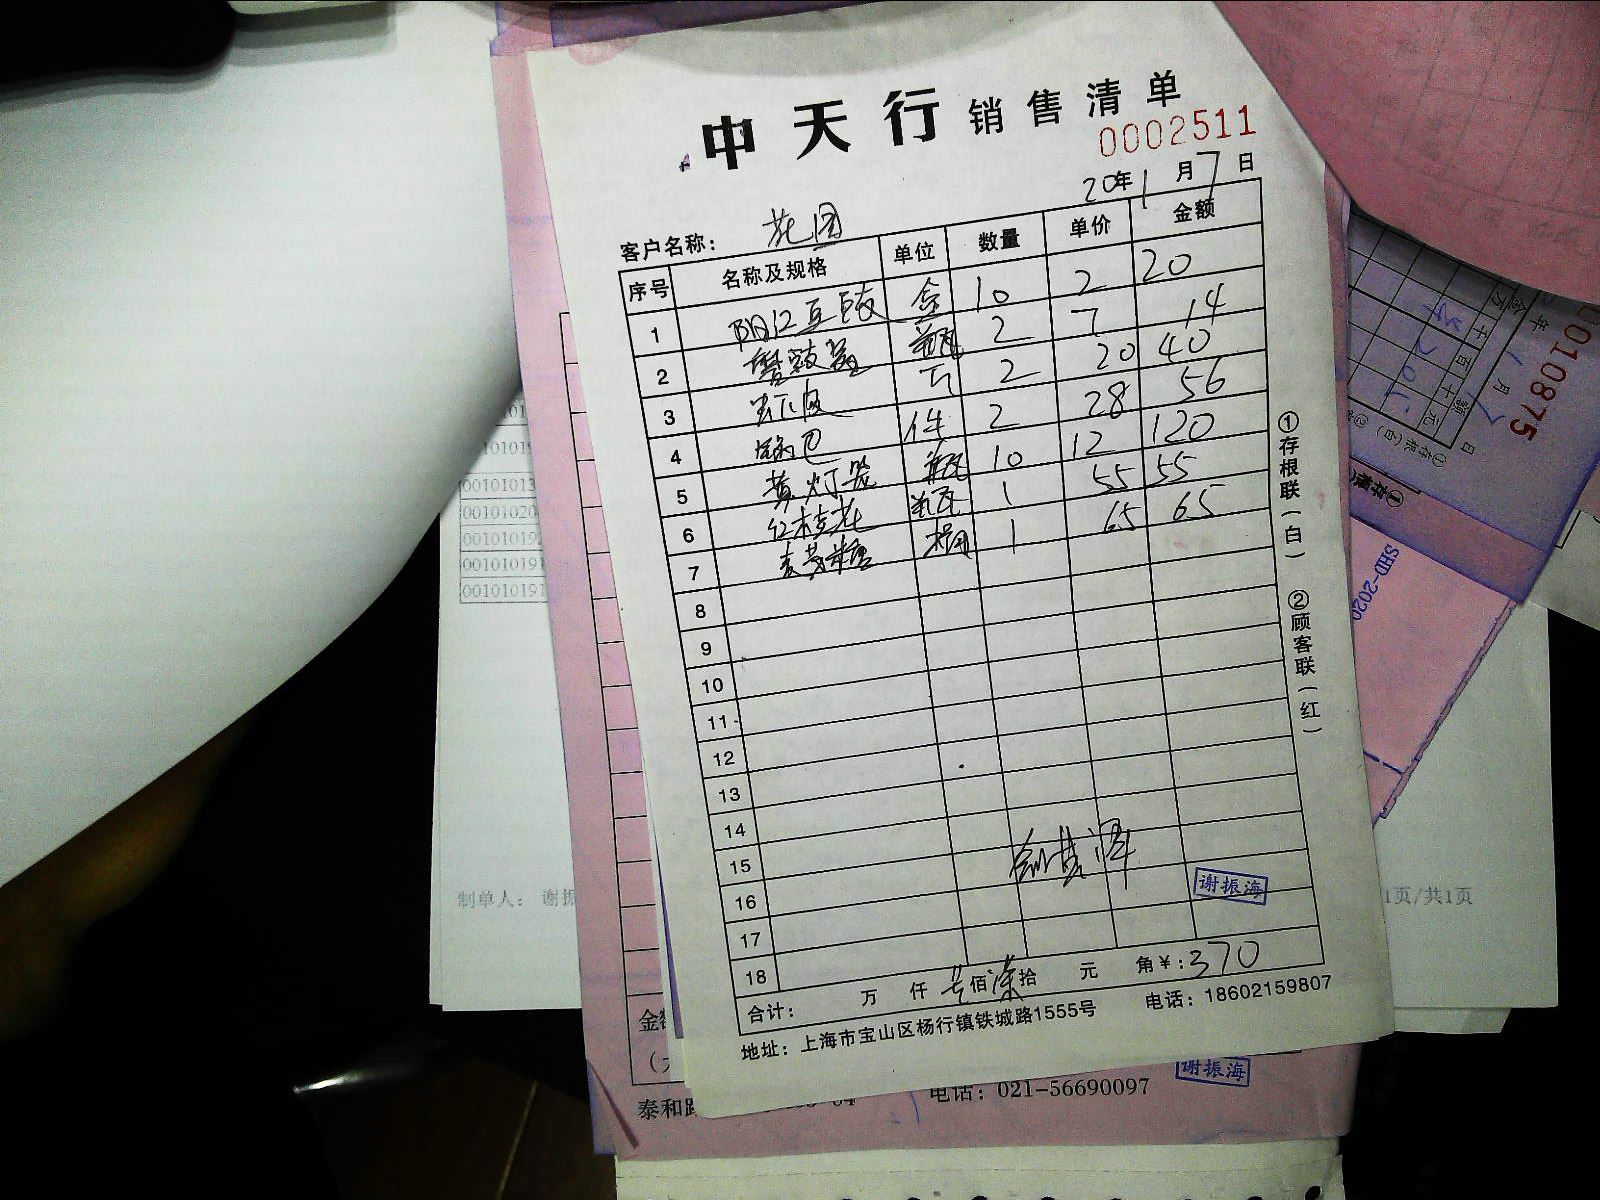 中天行 销售清单
0002511
20年1月7日
客户名称: 花园
序号 名称及规格 单位 数量 单价 金额
1 阳江豆豉 盒 10 2 20
2 瓶 2 7 14
3 2 20 40
4 锅巴 件 2 28 56
5 黄灯笼 瓶 10 12 120
6 红桂花 瓶 1 55 55
7 麦芽糖 桶 1 65 65
8
9
10
11
12
13
14
15
16
17
18
谢振海
合计: 万 仟 叁佰柒拾 元 角¥:370
地址: 上海市宝山区杨行镇铁城路1555号 电话: 18602159807
①存根联(白) ②顾客联(红)
0010875
①存根(白)
SHD-2020
00101013
00101020
0010101919
001010191
001010191
制单人: 谢振
1页/共1页
谢振海
泰和路
电话: 021-56690097